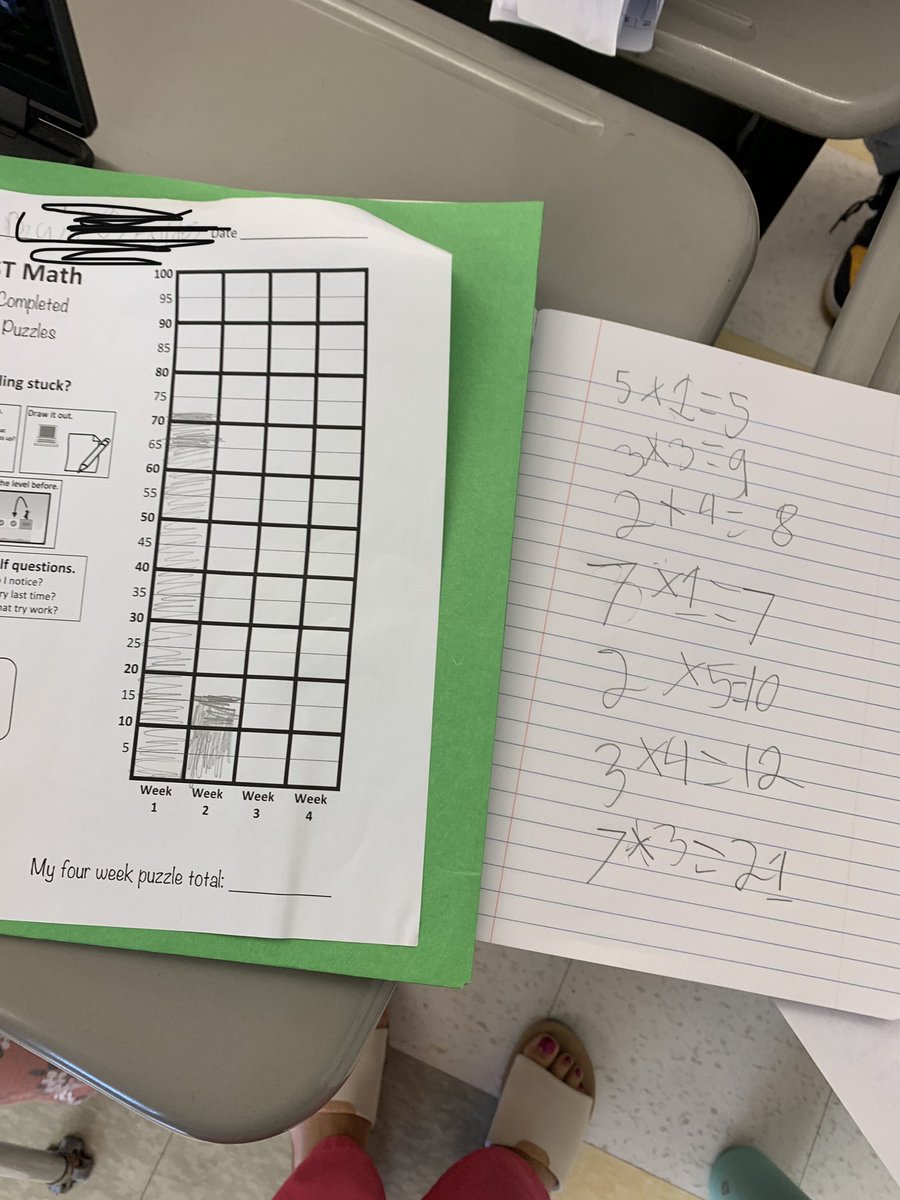 Date
ST Math
Completed
Puzzles
ling stuck?
Draw it out.
he level before.
lf questions.
I notice?
ry last time?
hat try work?
100
95
90
85
80
75
70
65
60
55
50
45
40
35
30
25
20
15
10
5
Week 1
Week 2
Week 3
Week 4
My four week puzzle total:
5×1=5
3×3=9
2×4=8
7×1=7
2×5=10
3×4=12
7×3=21